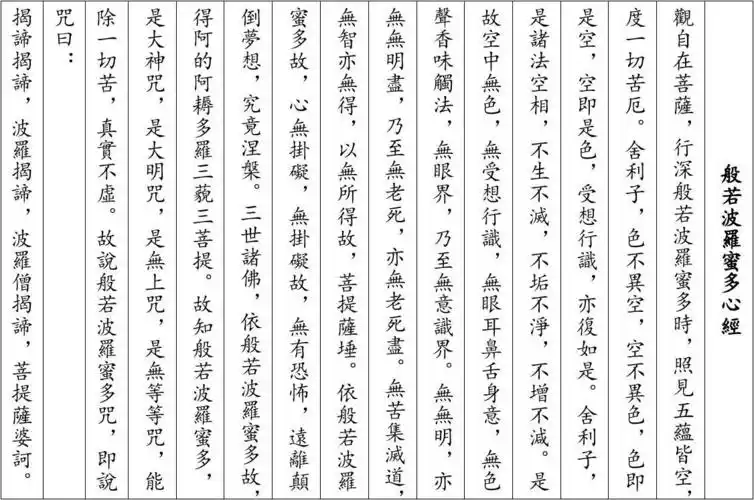 般若波羅蜜多心經
觀自在菩薩，行深般若波羅蜜多時，照見五蘊皆空，
度一切苦厄。舍利子，色不異空，空不異色，色即
是空，空即是色，受想行識，亦復如是。舍利子，
是諸法空相，不生不滅，不垢不淨，不增不減。是
故空中無色，無受想行識，無眼耳鼻舌身意，無色
聲香味觸法，無眼界，乃至無意識界。無無明，亦
無無明盡，乃至無老死，亦無老死盡。無苦集滅道，
無智亦無得，以無所得故，菩提薩埵。依般若波羅
蜜多故，心無掛礙，無掛礙故，無有恐怖，遠離顛
倒夢想，究竟涅槃。三世諸佛，依般若波羅蜜多故，
得阿的阿耨多羅三藐三菩提。故知般若波羅蜜多，
是大神咒，是大明咒，是無上咒，是無等等咒，能
除一切苦，真實不虛。故說般若波羅蜜多咒，即說
咒曰：
揭諦揭諦，波羅揭諦，波羅僧揭諦，菩提薩婆訶。